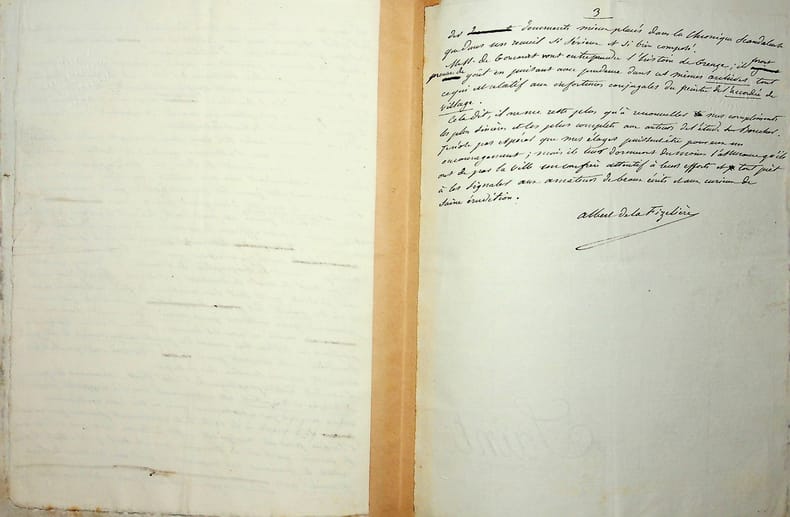 3
des documents mieux placés dans la Chronique Scandaleuse
que dans un recueil si sérieux et si bien composé.
MM. de Goncourt vont entreprendre l'histoire de Greuze; il
preuve de goût en puisant avec prudence dans ces mêmes archives, tout
ce qui est relatif aux infortunes conjugales du peintre de l'accordée de
village.
Cela dit, il ne me reste plus qu'à renouveller mes compliments
les plus sincères et les plus complets aux auteurs de l'étude de Boucher.
Je n'ose pas espérer que mes éloges puissent être pour eux un
encouragement; mais ils leur donneront du moins l'assurance qu'ils
ont de par la ville un confrère attentif à leurs efforts et tout prêt
à les signaler aux amateurs de beaux écrits et aux curieux de
saine érudition.
Albert de la Fizelière